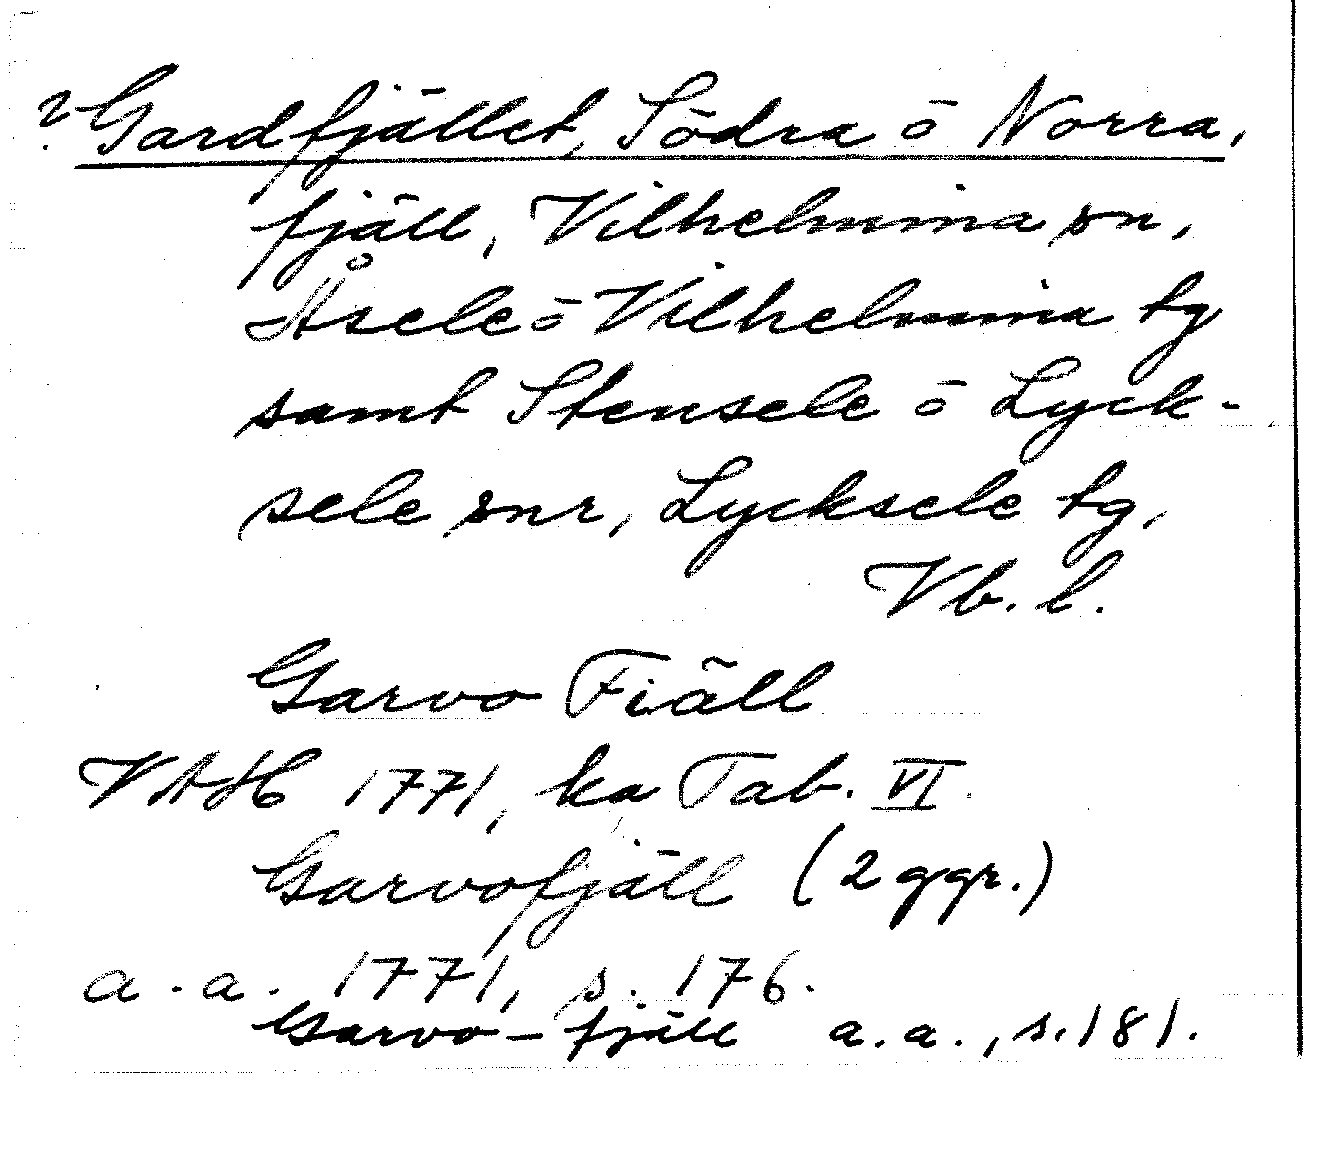 ? Gardfjället, Södra ō Norra,
fjäll, Vilhelmina sn,
Åsele ō Vilhelmina tg
samt Stensele ō Lyck-
sele snr, Lycksele tg,
Vb. l.
Garvo Fiäll
VAH 1771, ka Tab. VI.
Garvofjäll (2 ggr.)
a. a. 1771, s. 176.
Garvo-fjäll a. a., s. 181.